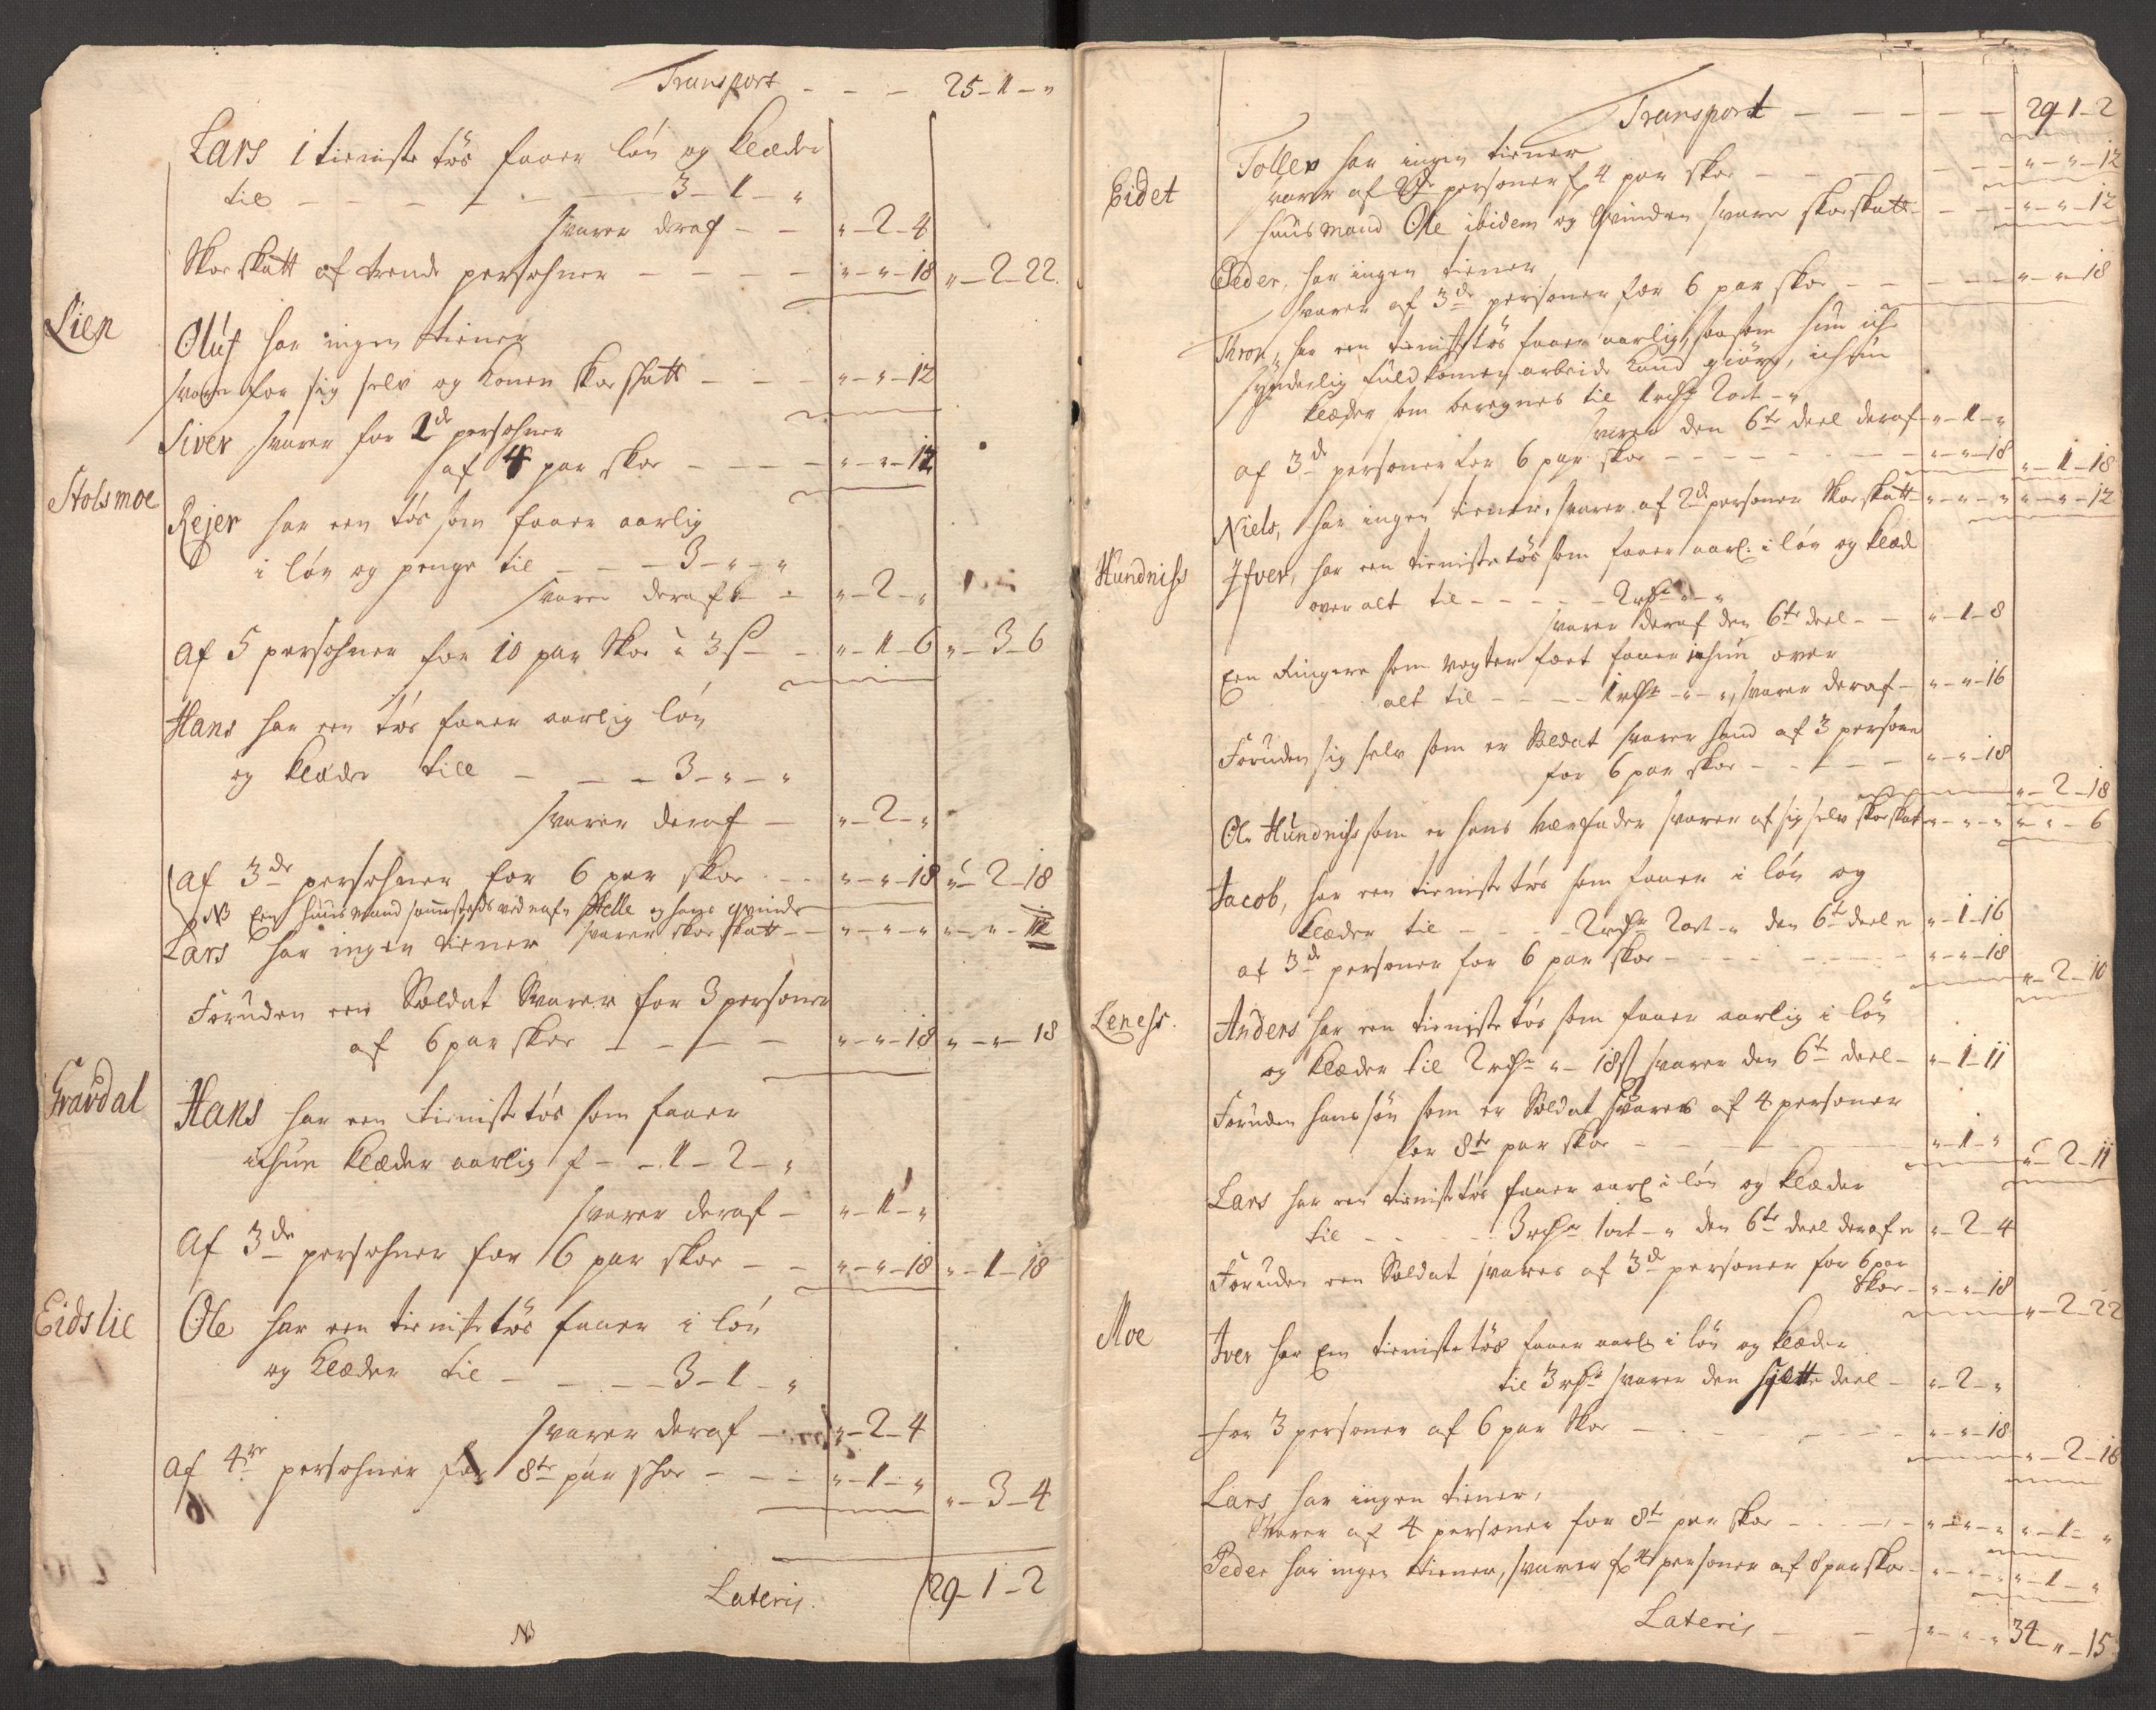 Transport - - - 25-1-"
Lars 1 tieniste tøs faaer løn og klæder
til - - - - - - 3-1-"
svarer deraf - - "-2-4
Skoeskatt af trende persohner - - - - "-"-18 "-2-22.
Lien
Oluf har ingen tiener
svarer for sig selv og konen skoeskatt - - - "-"-12
Siver svarer for 2de persohner
af 4 par skoe - - - - "-"-12
Stolsmoe
Rejer har een tøs som faaer aarlig
i løn og penge til - - - 3-"-"
svarer deraf - - "-2-"
Af 5 persohner for 10 par Skoe a 3 s - - "-1-6 "-3-6
Hans har een tøs faaer aarlig løn
og klæder till - - - 3-"-"
svarer deraf - "-2-"
Af 3de persohner for 6 par skoe - - "-"-18 "-2-18
NB Een huusmand sammesteds ved nafn Helle og hans qvinde
Lars har ingen tiener svarer skoeskatt - - "-"-" "-"-12
Foruden een Soldat Svarer for 3 personer
af 6 par skoe - - - - "-"-18 "-"-18
Gravdal
Hans har een tieniste tøs som faaer
ichun klæder aarlig f - - 1-2-"
svarer deraf - "-1-"
Af 3de persohner for 6 par skoe - - "-"-18 "-1-18
Eidslie
Ole har een tieniste tøs faaer i løn
og klæder til - - - - 3-1-"
svarer deraf - "-2-4
Af 4re persohner for 8te par skoe - - - "-1-" "-3-4
Lateris. 29-1-2
NB
Transport - - - - - 29-1-2
Eidet
Tollev har ingen tiener
svarer af 2de personer f 4 par skoe - - - - - "-"-12
huusmand Ole ibidem og Qvinden svarer skoeskatt - - - "-"-12
Peder, har ingen tiener
svarer af 3de personer for 6 par skoe - - - - - "-"-18
Thron, har een tienistetøs faaer aarlig, saasom hun icke
synderlig fuldkommen arbeide kand giøre, ichun
klæder som beregnes til 1 rdr 2 ort -"
svarer den 6te deel deraf "-1-"
af 3de personer for 6 par skoe - - - - - - - "-"-18 "-1-18
Niels, har ingen tiener, svarer af 2de personer skoeskatt "-"-" "-"-12
Hundniss
Ifver, har een tienistetøs som faaer aarl. i løn og klæd
over alt til - - - - - 2 rdr "-"
svarer deraf den 6te deel - - "-1-8
Een Ringere som vogter fæet faaer ichun over
alt til - - - - 1 rdr -"-", svarer deraf - "-"-16
Foruden sig selv som er Soldat svarer hand af 3 persone
for 6 par skoe - - - - - "-"-18
"-2-18
Ole Hundniss som er hans Værfader svarer af sig selv skoeskat "-"-" "-"-6
Jacob, har een tieniste tøs som faaer i løn og
klæder til - - - - 2 rdr 2 ort -" den 6te deel er "-1-16
af 3de personer for 6 par skoe - - - - - - - "-"-18
"-2-10
Leness.
Anders har een tieniste tøs som faaer aarlig i løn
og klæder til 2 rdr "-18 s svarer den 6te deel - "-1-11
Foruden hans søn som er Soldat svares af 4 personer
for 8te par skoe - - - - - - "-1-"
"-2-11
Lars har een tieniste tøs faaer aarl i løn og klæder
til - - - - - 3 rdr 1 ort -" den 6te deel deraf er "-2-4
Foruden een Soldat svares af 3de personer for 6 par
skoe - "-"-18
"-2-22
Moe
Iver har Een tieniste tøs faaer aarl i løn og klæder
til 3 rdr svarer den siette deel - "-2-"
for 3 personer af 6 par Skoe - - - - - - - "-"-18
"-2-18
Lars har ingen tiener,
Svarer af 4 personer for 8te par skoe - - - - "-"-" "-1-"
Peder har ingen tiener, svarer f 4 personer af 8 par skoe - "-"-" "-1-"
Lateris - - "-"-" 34-"-15